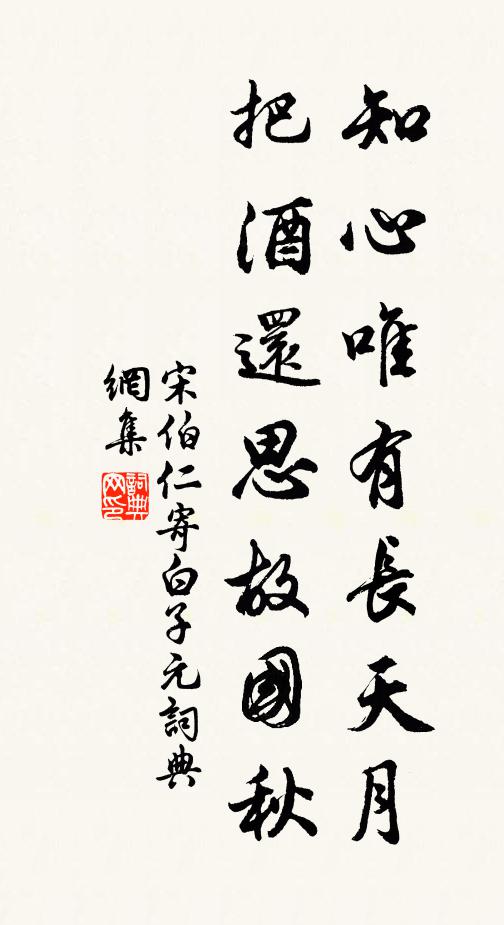 知心唯有長天月
把酒還思故國秋
宋伯仁寄白子元詞典
網集
詞典网印